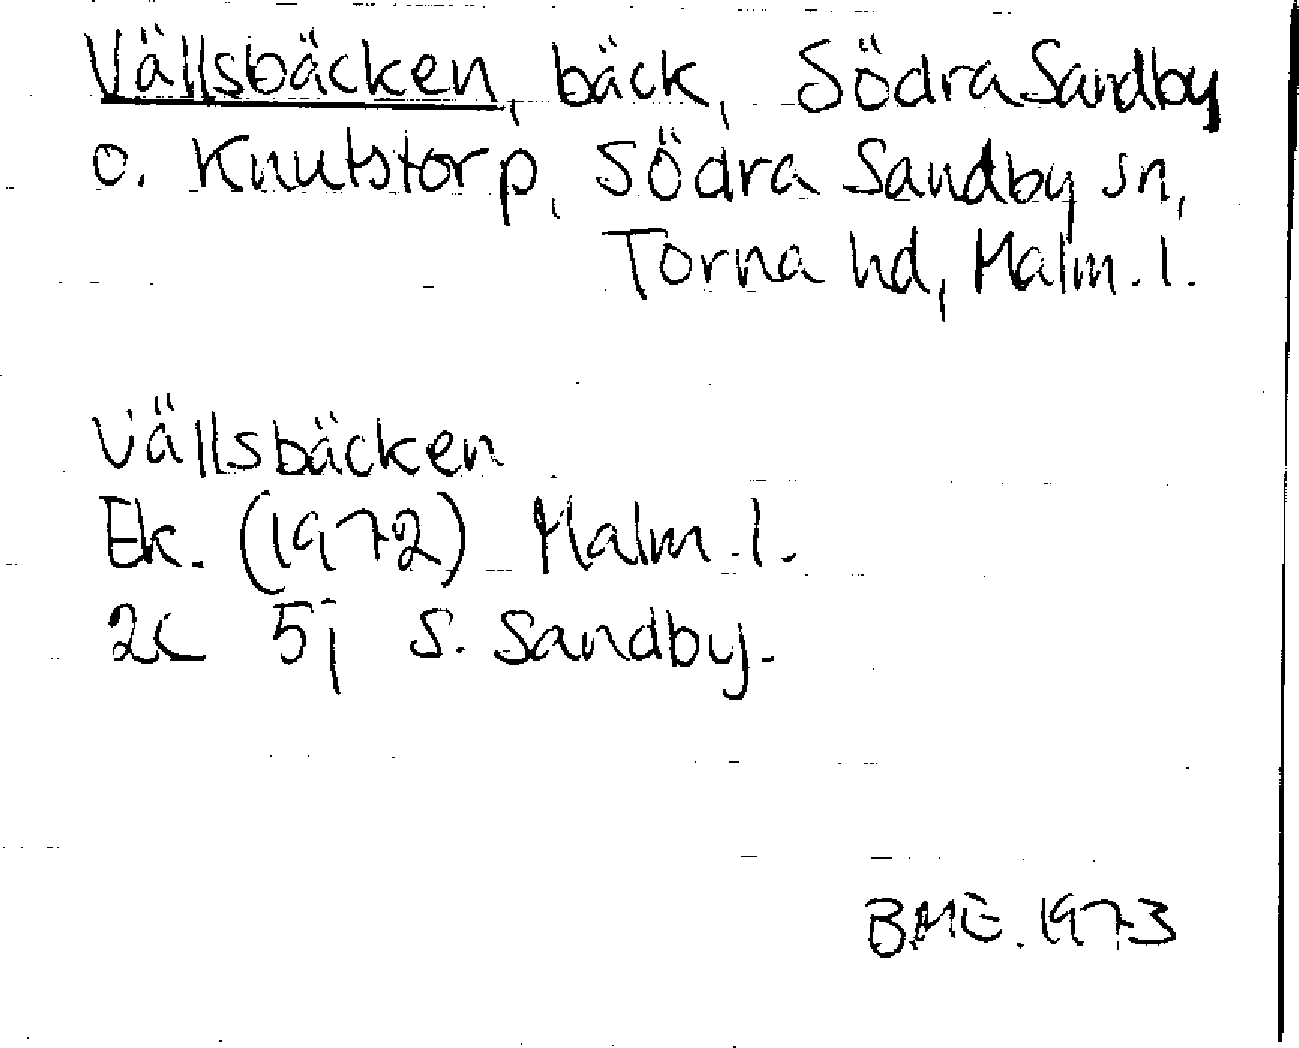 Vällsbäcken, bäck, Södra Sandby
o. Knutstorp, Södra Sandby sn,
Torna hd, Malm. l.
Vällsbäcken
Ek. (1972) Malm. l.
2C 5j S. Sandby.
BME. 1973